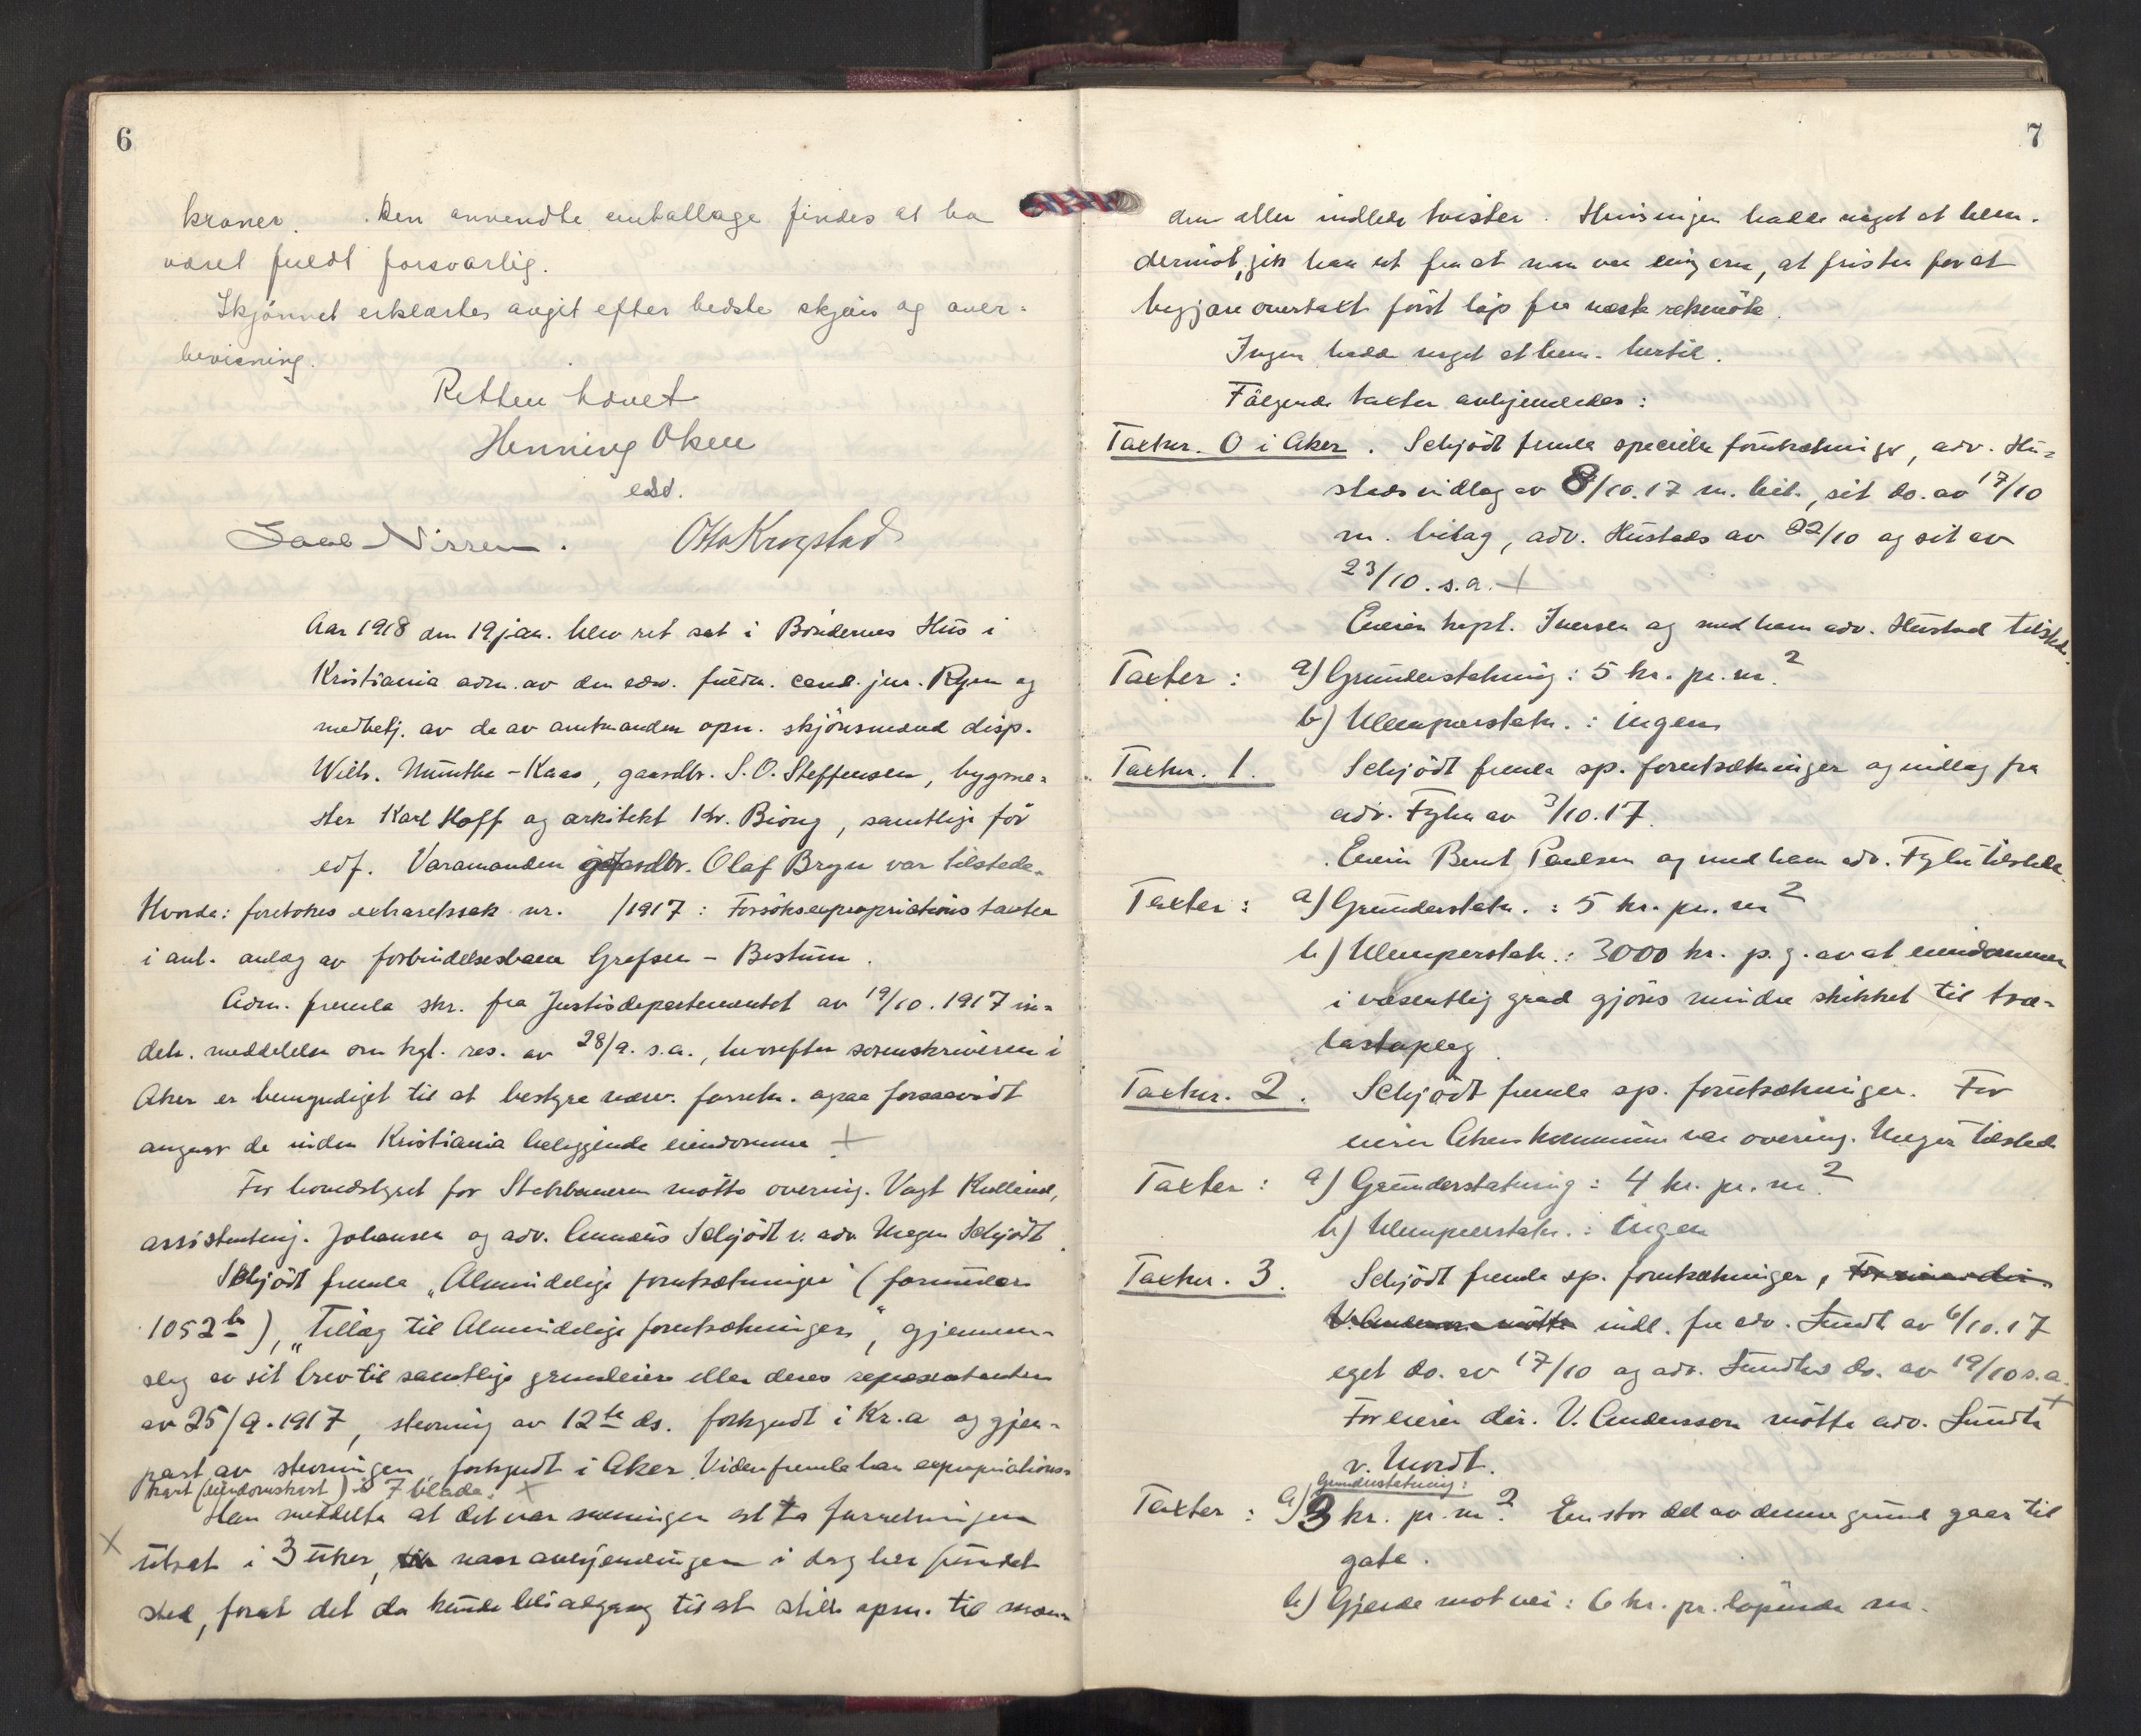 6
kroner. Den anvendte emballage findes at ha
været fuldt forsvarlig.
Skjønnet erklærtes avgit efter bedste skjøn og over-
bevisning.
Retten hævet
Henning Olsen
edsv.
Nissen. Otto Krogstad
Aar 1918 den 19 jan. blev ret sat i Bøndernes Hus i
Kristiania adm. av den edsv. fuldm. cand. jur. Ryen og
medbetj. av de av amtmanden opn. skjønsmænd disp.
Wilh. Munthe-Kaas, gaardbr. S. O. Steffensen, bygme-
ster Karl Hoff og arkitekt Kr. Biong, samtlige før
edf. Varamanden gaardbr. Olaf Bryn var tilstede.
Hvorda: foretokes extraretssak nr. /1917: Forsøksexpropriationstaxter
i anl. anlæg av forbindelsesbane Grefsen - Bestum.
Adm. fremla skr. fra Justisdepartementet av 19/10. 1917 in-
deh. meddelelse om kgl. res. av 28/9. s.a., hvorefter sorenskriveren i
Aker er bemyndiget til at bestyre nærv. forretn. ogsaa forsaavidt
angaar de inden Kristiania beliggende eiendomme +
For hovedstyret for Statsbanerne møtte overing. Vogt
assistenting. Johansen og adv. Annæus Schjødt v. adv. Schjødt.
Schjødt fremla „Almindelige forutsætninger" (formular
1052 b), „Tillæg til Almindelige forutsætninger", gjennem-
slag av sit brev til samtlige grundeiere eller deres representanter
av 25/9. 1917, stevning av 12te ds. forkyndt i Kr.a og gjen-
part av stevningen forkyndt i Aker. Viden fremla han expropriations-
kart (eiendomskart) i 7 blade. +
Han meddelte at det var meningen at ta forretningen
X utsat i 3 uker, naar avhjemlingen i dag har fundet
sted, forat det da kunde bli adgang til at stille spm. til mæn-
7
den eller indlede tvister. Hvis ingen hadde noget at bem.
derimot, gik han ut fra at man var enig om, at fristen for at
begjære overtakst først løp fra næste retsmøte.
Ingen hadde noget at bem. hertil.
Følgende taxter avhjemledes:
Taxtnr. 0 i Aker. Schjødt fremla specielle forutsætninger, adv. Hu-
stads indlæg av 8/10. 17 m. bil., sit do. av 17/10
m. bilag, adv. Hustads av 22/10 og sit av
23/10. s.a. +
Eieren kapt. Iversen og med ham adv. Hustad tilstede.
Taxter: a) Grunderstatning: 5 kr. pr. m.2
b) Ulempeerstatn.: ingen
Taxtnr. 1. Schjødt fremla sp. forutsætninger og indlæg fra
adv. av 3/10. 17.
Eieren Bernt Paulsen og med ham adv. tilstede.
Taxter: a) Grunderstatn.: 5 kr. pr. m2
b) Ulempeerstatn.: 3000 kr. p. g. av at eiendommen
i væsentlig grad gjøres mindre skikket til træ-
lastoplag.
Taxtnr. 2. Schjødt fremla sp. forutsætninger. For
eieren Akers kommune var overing. Unger tilstede
Taxter: a) Grunderstatning: 4 kr. pr. m.2
b) Ulempeerstatn.: ingen
Taxtnr. 3. Schjødt fremla sp. forutsætninger,
V. Andersson møtte indl. fra adv. Sundt av 6/10. 17
eget do. av 17/10 og adv. Sundts do. av 19/10 s.a. +
For eieren dir. V. Andersson møtte adv. Sundt
v. Mordt.
Taxter: a) Grunderstatning: 3 kr. pr. m.2 En stor del av denne grund gaar til
gate.
b) Gjerde mot vei: 6 kr. pr. løpende m.